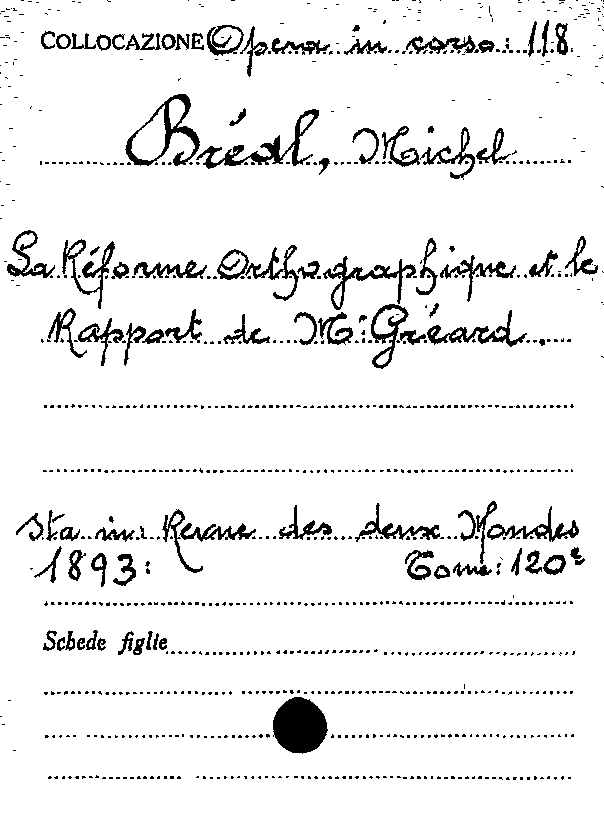 COLLOCAZIONE Opera in corso: 118
Bréal, Michel
La Réforme Orthographique et le
Rapport de Mr: Gréard.
Sta in: Revue des deux Mondes
1893: Tome: 120e
Schede figlie